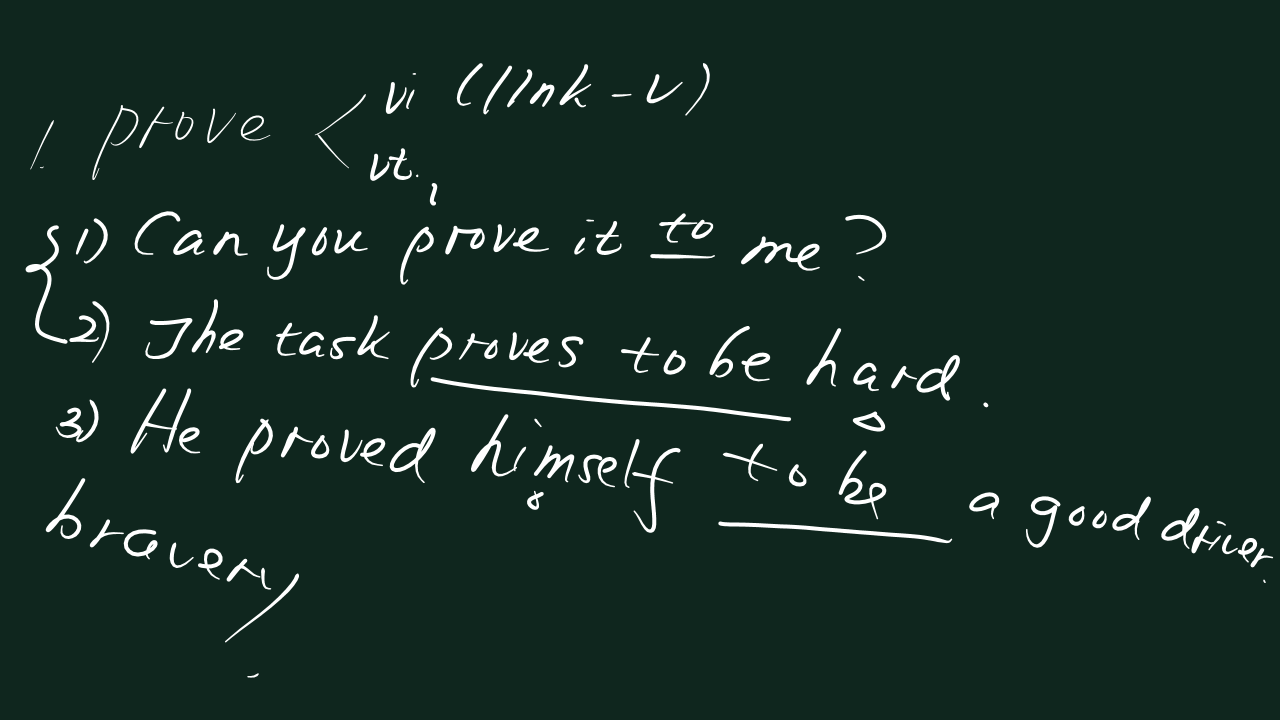 1. prove < vi (link-v)
vt.
1) Can you prove it to me?
2) The task proves to be hard.
3) He proved himself to be a good driver.
bravery